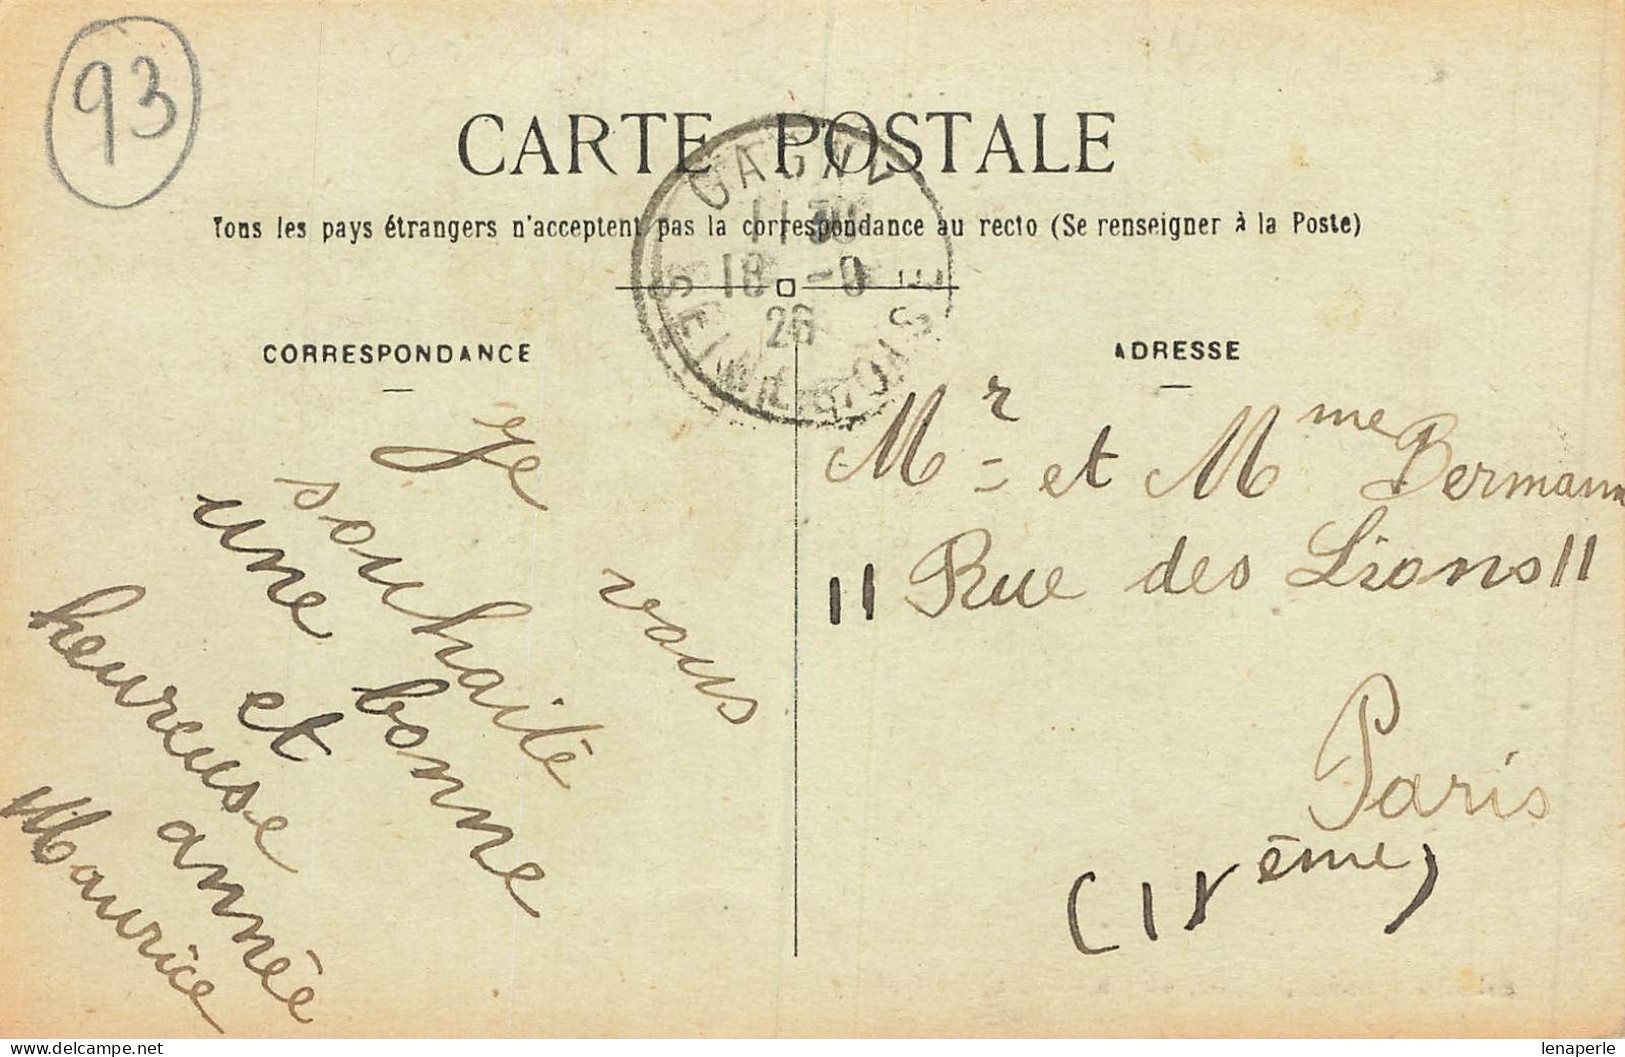 93
CARTE POSTALE
Tous les pays étrangers n'acceptent pas la correspondance au recto (Se renseigner à la Poste)
GAGNY
11 30
18 -9
26
SEINE-ET-OISE
CORRESPONDANCE
Je vous
souhaite
une bonne
et
heureuse
année
Maurice
ADRESSE
Mr = et Mme Bermann
11 Rue des Lions 11
Paris
(IVème)
lenaperle